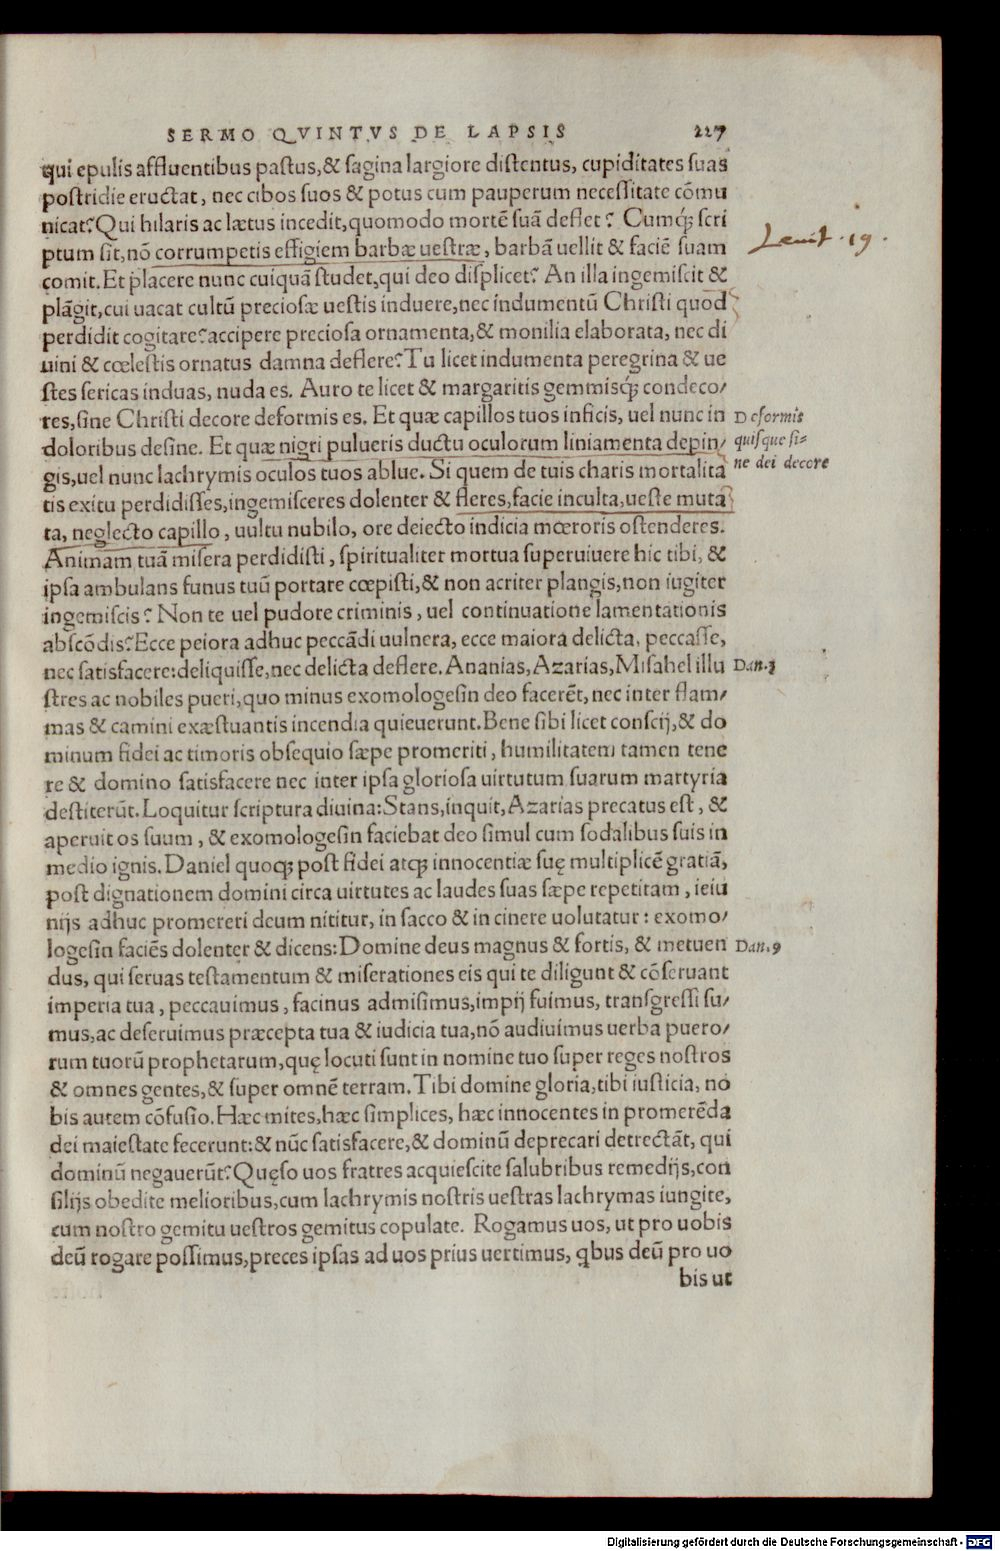 SERMO QVINTVS DE LAPSIS 227
qui epulis affluentibus pastus,& sagina largiore distentus, cupiditates suas
postridie eructat, nec cibos suos & potus cum pauperum necessitate cōmu
nicat? Qui hilaris ac lætus incedit,quomodo mortē suā deflet? Cumq; scri
ptum sit,nō corrumpetis effigiem barbæ uestræ, barbā uellit & faciē suam
comit.Et placere nunc cuiquā studet,qui deo displicet? An illa ingemiscit &
plāgit,cui uacat cultū preciosæ uestis induere,nec indumentū Christi quod
perdidit cogitare?accipere preciosa ornamenta,& monilia elaborata, nec di
uini & cœlestis ornatus damna deflere? Tu licet indumenta peregrina & ue
stes sericas induas, nuda es. Auro te licet & margaritis gemmisq; condeco/
res,sine Christi decore deformis es. Et quæ capillos tuos inficis, uel nunc in
doloribus desine. Et quæ nigri pulueris ductu oculorum liniamenta depin/
gis,uel nunc lachrymis oculos tuos ablue. Si quem de tuis charis mortalita
tis exitu perdidisses,ingemisceres dolenter & fleres,facie inculta,ueste muta
ta, neglecto capillo, uultu nubilo, ore deiecto indicia mœroris ostenderes.
Animam tuā misera perdidisti, spiritualiter mortua superuiuere hic tibi, &
ipsa ambulans funus tuū portare cœpisti,& non acriter plangis,non iugiter
ingemiscis? Non te uel pudore criminis, uel continuatione lamentationis
abscōdis?Ecce peiora adhuc peccādi uulnera, ecce maiora delicta, peccasse,
nec satisfacere:deliquisse,nec delicta deflere. Ananias,Azarias,Misahel illu
stres ac nobiles pueri,quo minus exomologesin deo facerēt,nec inter flam/
mas & camini exæstuantis incendia quieuerunt.Bene sibi licet conscij,& do
minum fidei ac timoris obsequio sæpe promeriti, humilitatem tamen tene
re & domino satisfacere nec inter ipsa gloriosa uirtutum suarum martyria
destiterūt.Loquitur scriptura diuina:Stans,inquit,Azarias precatus est, &
aperuit os suum, & exomologesin faciebat deo simul cum sodalibus suis in
medio ignis.Daniel quoq; post fidei atq; innocentiæ suę multiplicē gratiā,
post dignationem domini circa uirtutes ac laudes suas sæpe repetitam, ieiu
nijs adhuc promereri deum nititur, in sacco & in cinere uolutatur: exomo/
logesin faciēs dolenter & dicens:Domine deus magnus & fortis, & metuen
dus, qui seruas testamentum & miserationes eis qui te diligunt & cōseruant
imperia tua, peccauimus, facinus admisimus,impij fuimus, transgressi su/
mus,ac deseruimus præcepta tua & iudicia tua,nō audiuimus uerba puero/
rum tuorū prophetarum,quę locuti sunt in nomine tuo super reges nostros
& omnes gentes,& super omnē terram.Tibi domine gloria,tibi iusticia, no
bis autem cōfusio.Hæc mites,hæc simplices, hæc innocentes in promerēda
dei maiestate fecerunt:& nūc satisfacere,& dominū deprecari detrectāt, qui
dominū negauerūt?Quęso uos fratres acquiescite salubribus remedijs,con
silijs obedite melioribus,cum lachrymis nostris uestras lachrymas iungite,
cum nostro gemitu uestros gemitus copulate. Rogamus uos, ut pro uobis
deū rogare possimus,preces ipsas ad uos prius uertimus, qbus deū pro uo
bis ut
Leuit. 19.
Deformis
quisque si-
ne dei decore
Dan.3
Dan.9
Digitalisierung gefördert durch die Deutsche Forschungsgemeinschaft - DFG